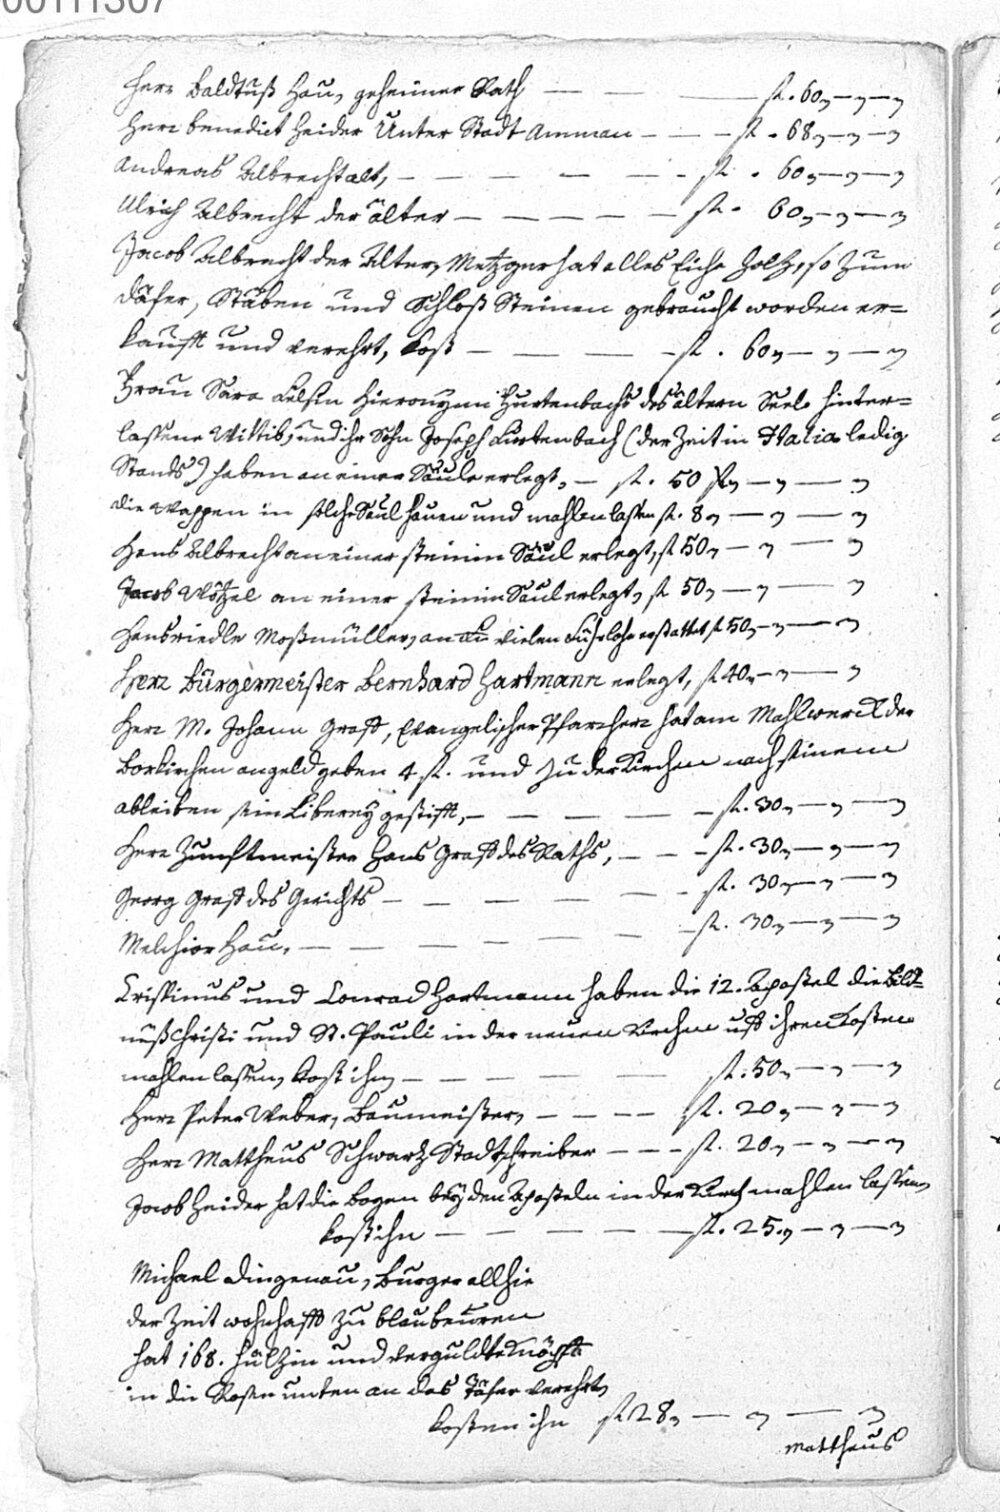 00111307
Herr Baldtuß Hau, geheimer Rath — — — fl. 60,—,—,
Herr Benedict Heider Unter Stadt Amman — — — fl. 68,—,—,
Andreas Albrecht alt, — — — — — fl. 60,—,—,
Ulrich Albrecht der älter — — — — — fl. 60,—,—,
Jacob Albrecht der Alter, Metzger hat alles Eiche Holtz, so zum
Däfer, Stäben und Schloß Steinen gebraucht worden er=
kaufft und verehrt, kost — — — — fl. 60,—,—,
Frau Sara Hieronymi Furtenbachs des ältern Seel. hinter=
lassene Wittib, und ihr Sohn Joseph Furtenbach (der Zeit in Italia ledig
Stands) haben an einer Säule erlegt, — fl. 50 —,—,
die Wappen in solche Säul hauen und mahlen lassen fl. 8,—,—,
Hans Albrecht an einer steinin Säul erlegt, fl 50,—,—,
Jacob Wötzel an einer steinin Säul erlegt, fl 50,—,—,
Moßmüller, an vielen Fuhrlohn erstattet fl 50,—,—,
Herr Bürgermeister Bernhard Hartmann erlegt, fl 40,—,—,
Herr M. Johann Graff, Evangelischer Pfarrherr hat am Mahlwerck der
Borkirchen an geld geben 4 fl. und zu der Kirchen nach seinem
ableiben sein Liberey gestifft, — — — — fl. 30,—,—,
Herr Zunftmeister Hans Graff des Raths, — — fl. 30,—,—,
Georg Graff des Gerichts — — — — — fl. 30,—,—,
Melchior Hau, — — — — — — fl. 30,—,—,
Crispinus und Conrad Hartmann haben die 12. Apostel die Bild=
nüß Christi und St. Pauli in der neuen Kirchen uff ihren Kosten
mahlen lassen, kost ihn, — — — — — fl. 50,—,—,
Herr Peter Weber, Baumeister, — — — — fl. 20,—,—,
Herr Mattheus Schwartz Stadtschreiber — — — fl. 20,—,—,
Jacob Heider hat die Bogen bey den Aposteln in der Kirch mahlen lassen,
kost ihn — — — — — fl. 25,—,—,
Michael Dingenau, Burger allhie
der Zeit wohnhafft zu Blaubeuren
hat 168. hültzin und verguldte Knöpff
in die Rosen unten an das Täfer verehrt,
kosten ihn fl 28,—,—,
Mattheus